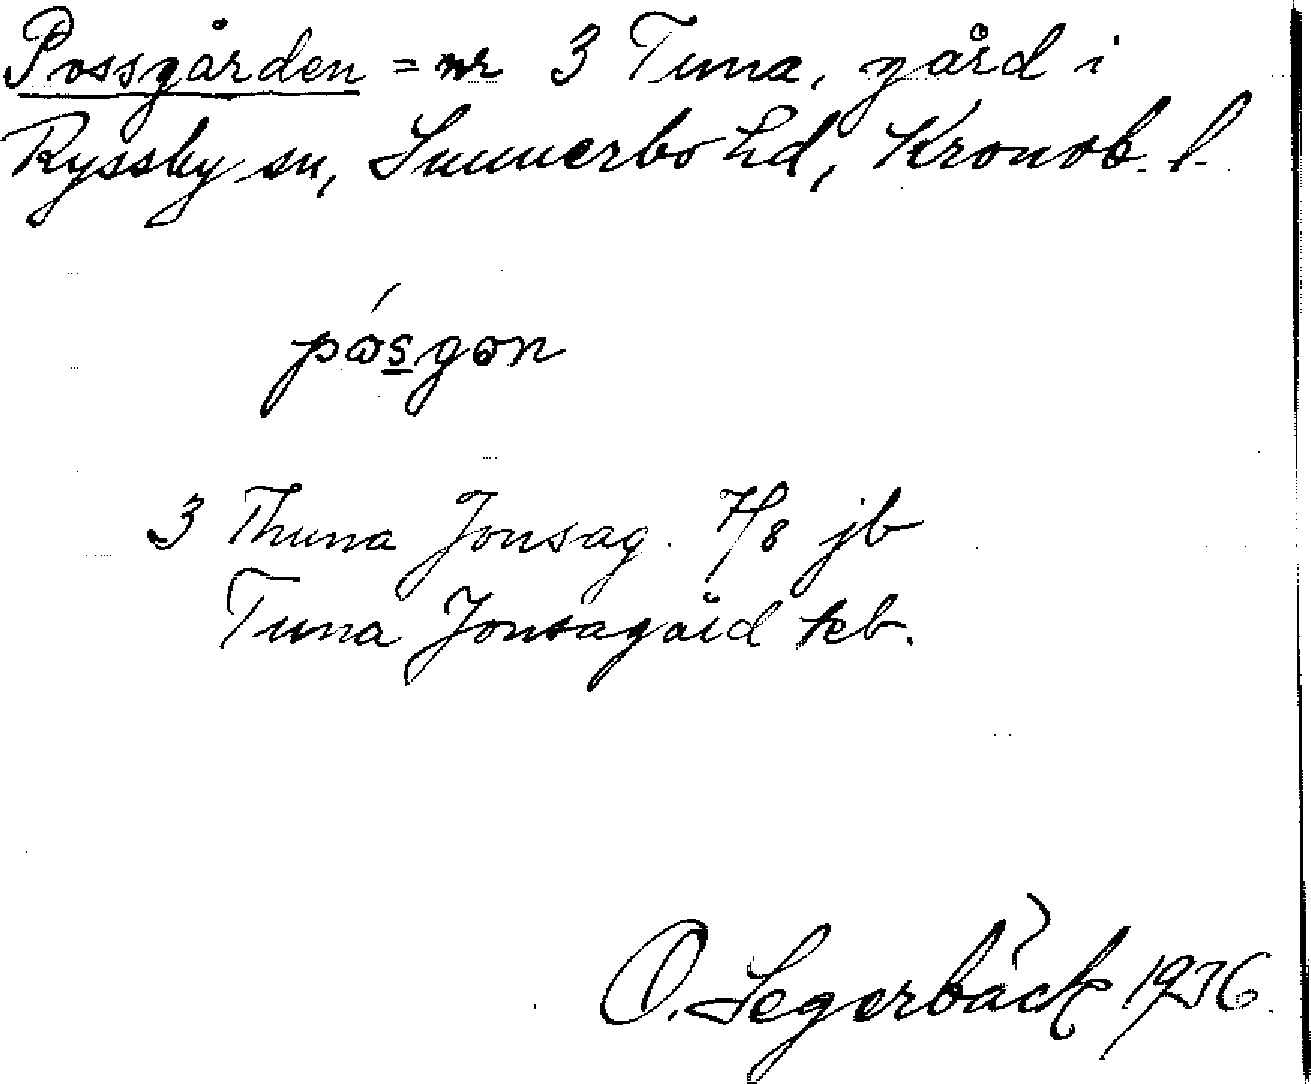 Possgården = nr 3 Tuna, gård i
Ryssby sn, Sunnerbo hd, Kronob. l.
pósgon
3 Thuna Jonsag. 7/8 jb
Tuna Jonsagård keb.
O. Segerbäck 1936